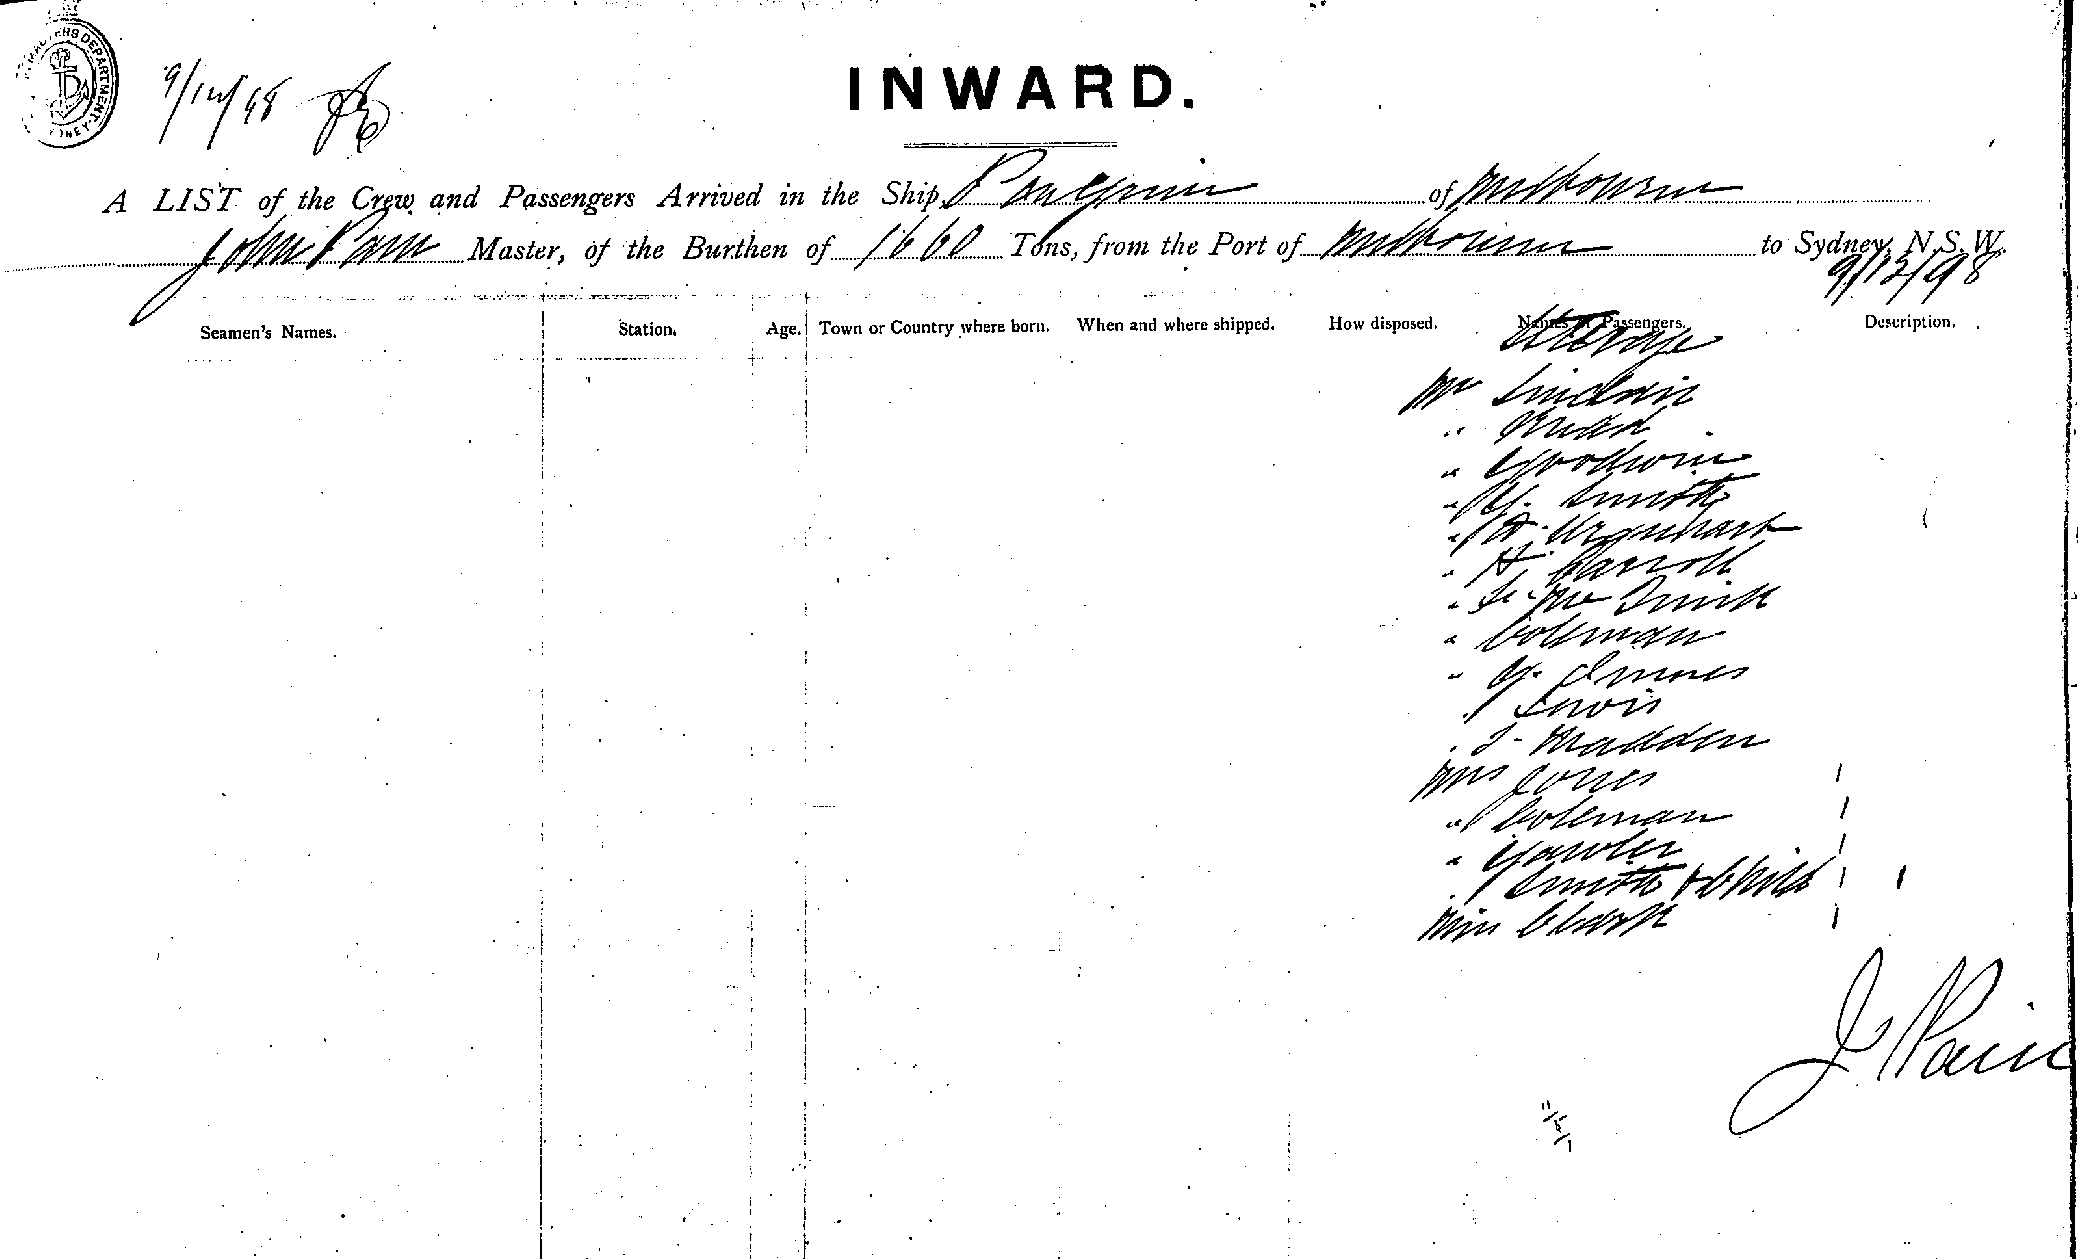 9/12/98
INWARD.
A LIST of the Crew and Passengers Arrived in the Ship Peregrine of Melbourne
John Pain Master, of the Burthen of 1660 Tons, from the Port of Melbourne to Sydney, N.S.W.
9/12/98
Seamen's Names. Station. Age. Town or Country where born. When and where shipped. How disposed. Names of Passengers. Description.
Steerage
Mr Sinclair
" Mead
" Goodwin
" G. Smith
" A. Urquhart
" H. Carroll
" Coleman
" G. Innes
" Lewis
" J. Madden
Mrs Jones
" Coleman
" Gawler
" Smith & Child
Miss Clark
J Pain